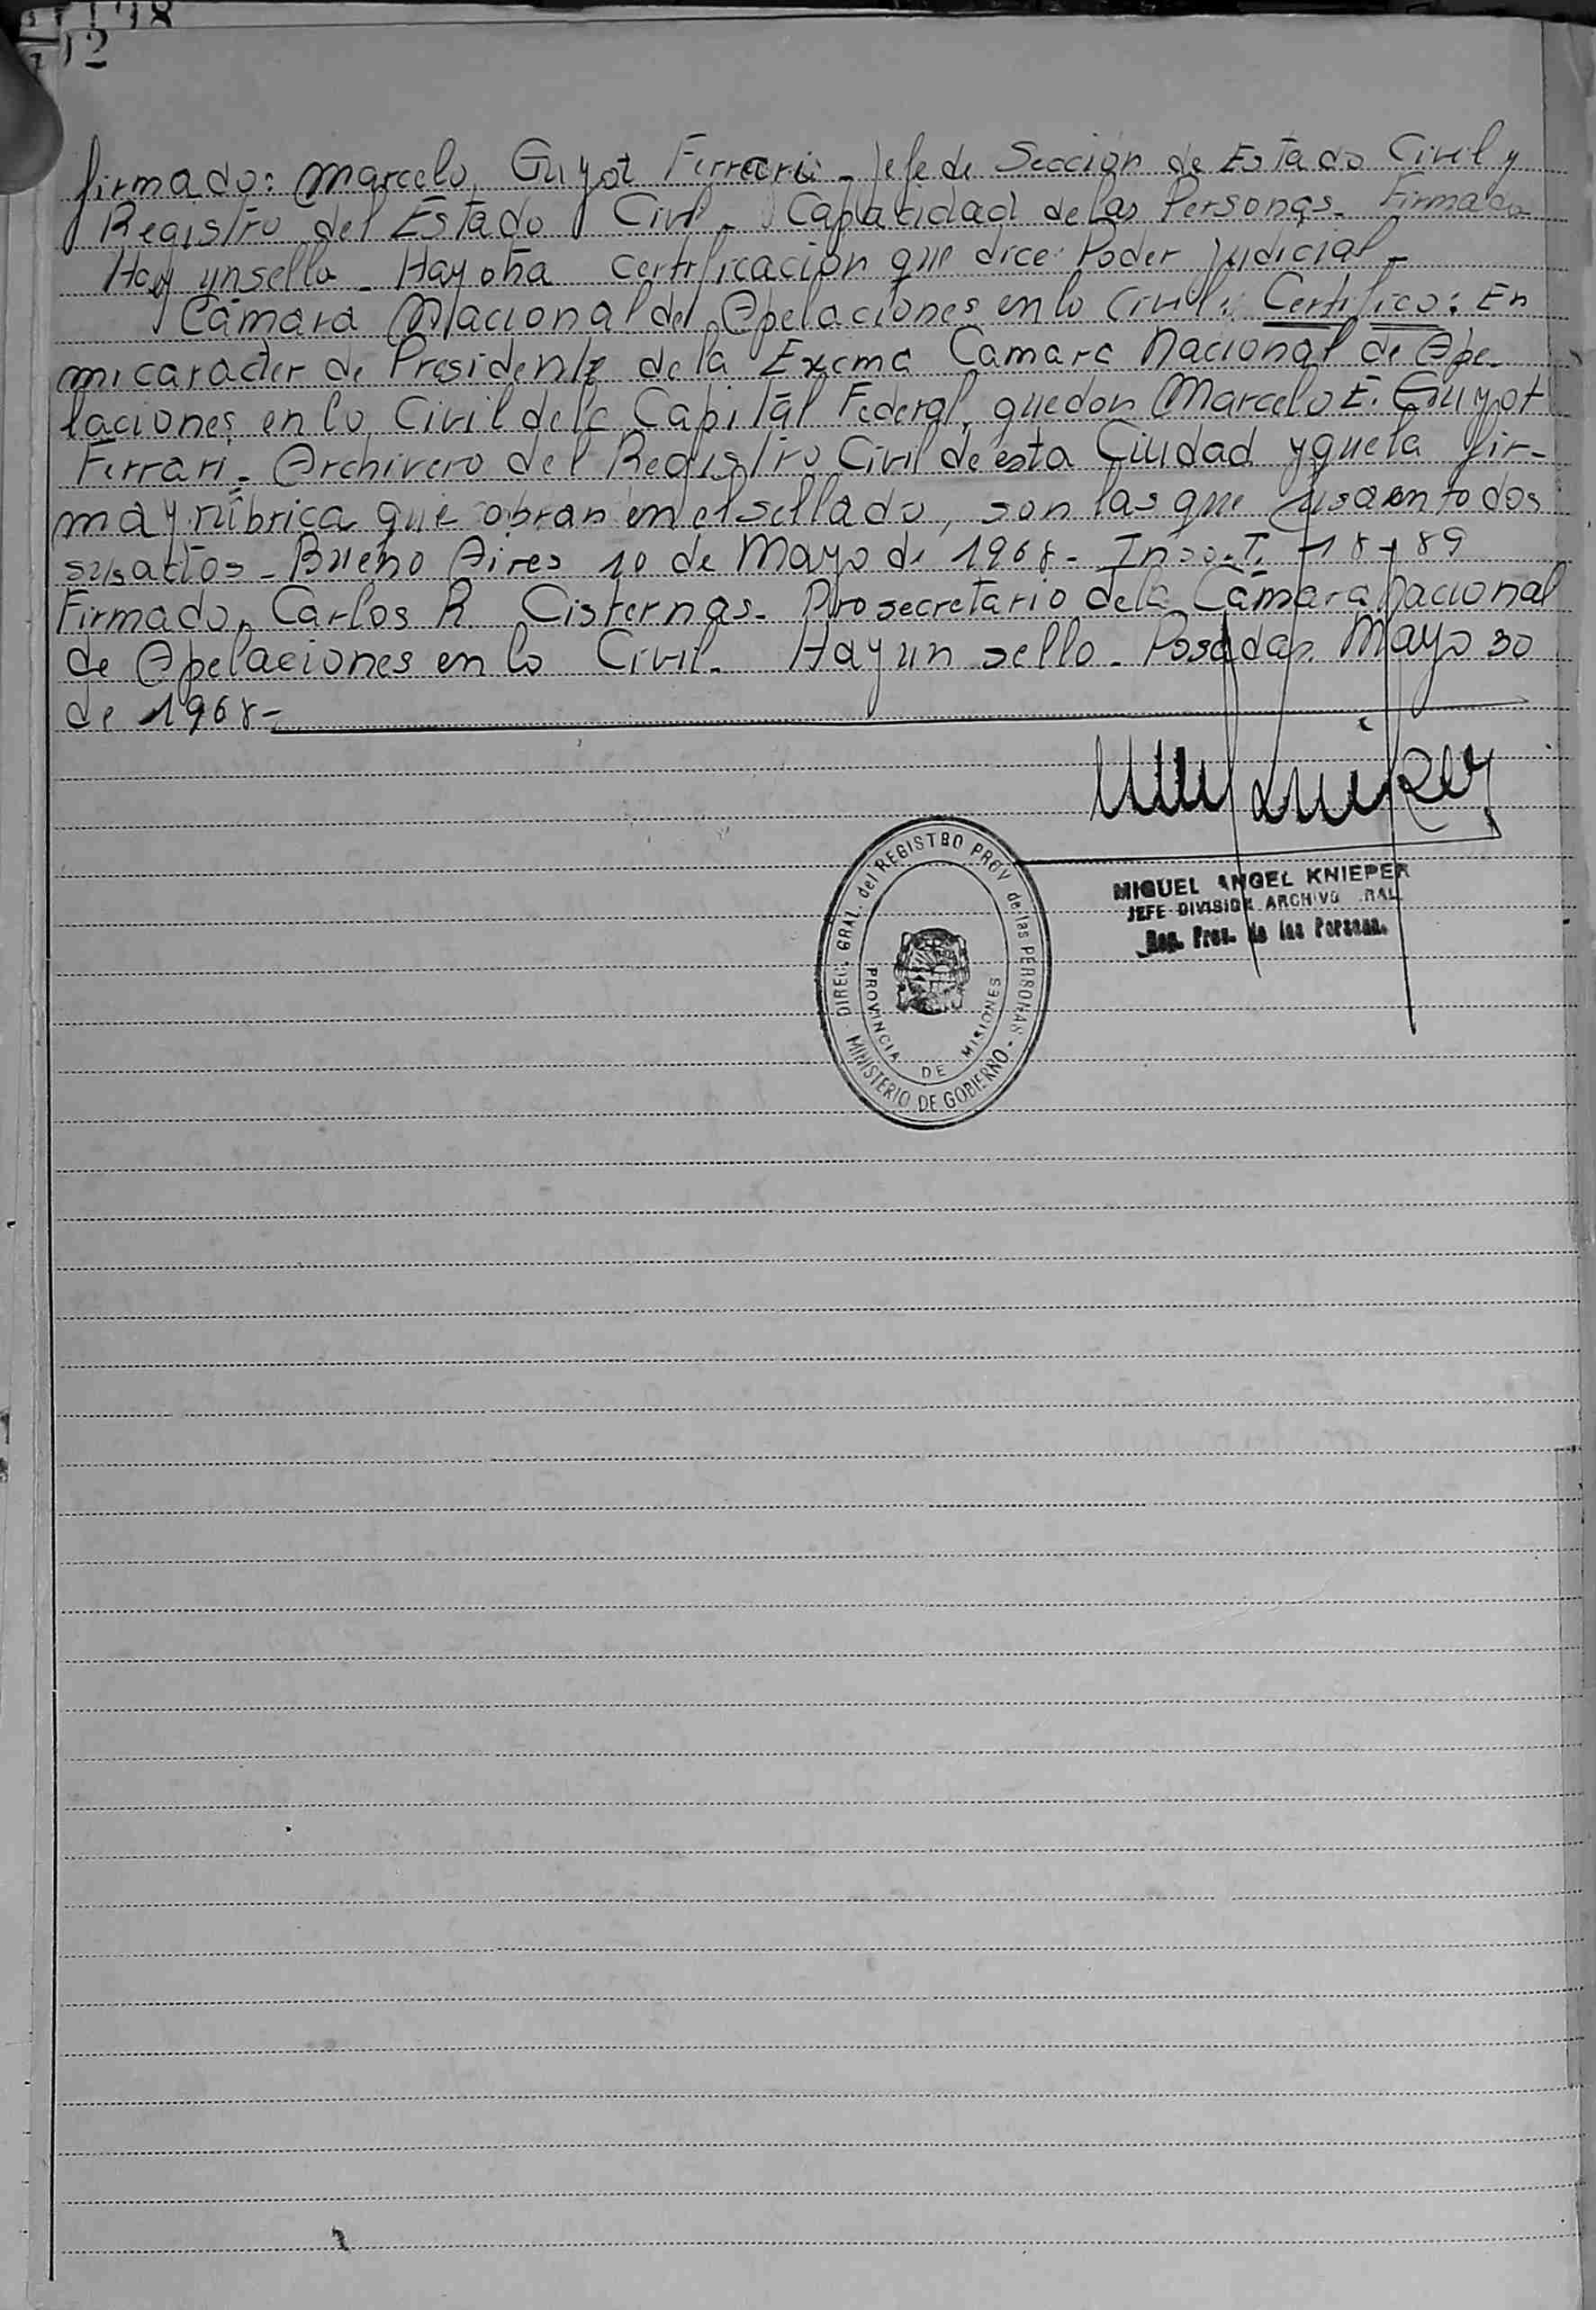 12
firmado: Marcelo, Guyot Ferrari - Jefe de Sección de Estado Civil y
Registro del Estado Civil - Capacidad de las Personas - Firmado
Hay un sello - Hay otra certificación que dice: Poder Judicial -
Cámara Nacional de Apelaciones en lo Civil: Certifico: En
mi caracter de Presidente de la Excma Camara Nacional de Ape-
laciones en lo Civil de la Capital Federal, que don Marcelo E. Guyot
Ferrari - Archivero del Registro Civil de esta Ciudad y que la fir-
ma y rúbrica que obran en el sellado, son las que usa en todos
sus actos - Bueno Aires 10 de Mayo de 1968 - 18-89
Firmado, Carlos R Cisternas - Prosecretario de la Cámara Nacional
de Apelaciones en lo Civil - Hay un sello - Posadas, Mayo 30
de 1968 -
MIGUEL ANGEL KNIEPER
JEFE DIVISION ARCHIVO
Reg. Prov. de las Personas.
DIREC. GRAL. del REGISTRO PROV. de las PERSONAS - MINISTERIO DE GOBIERNO -
PROVINCIA DE MISIONES